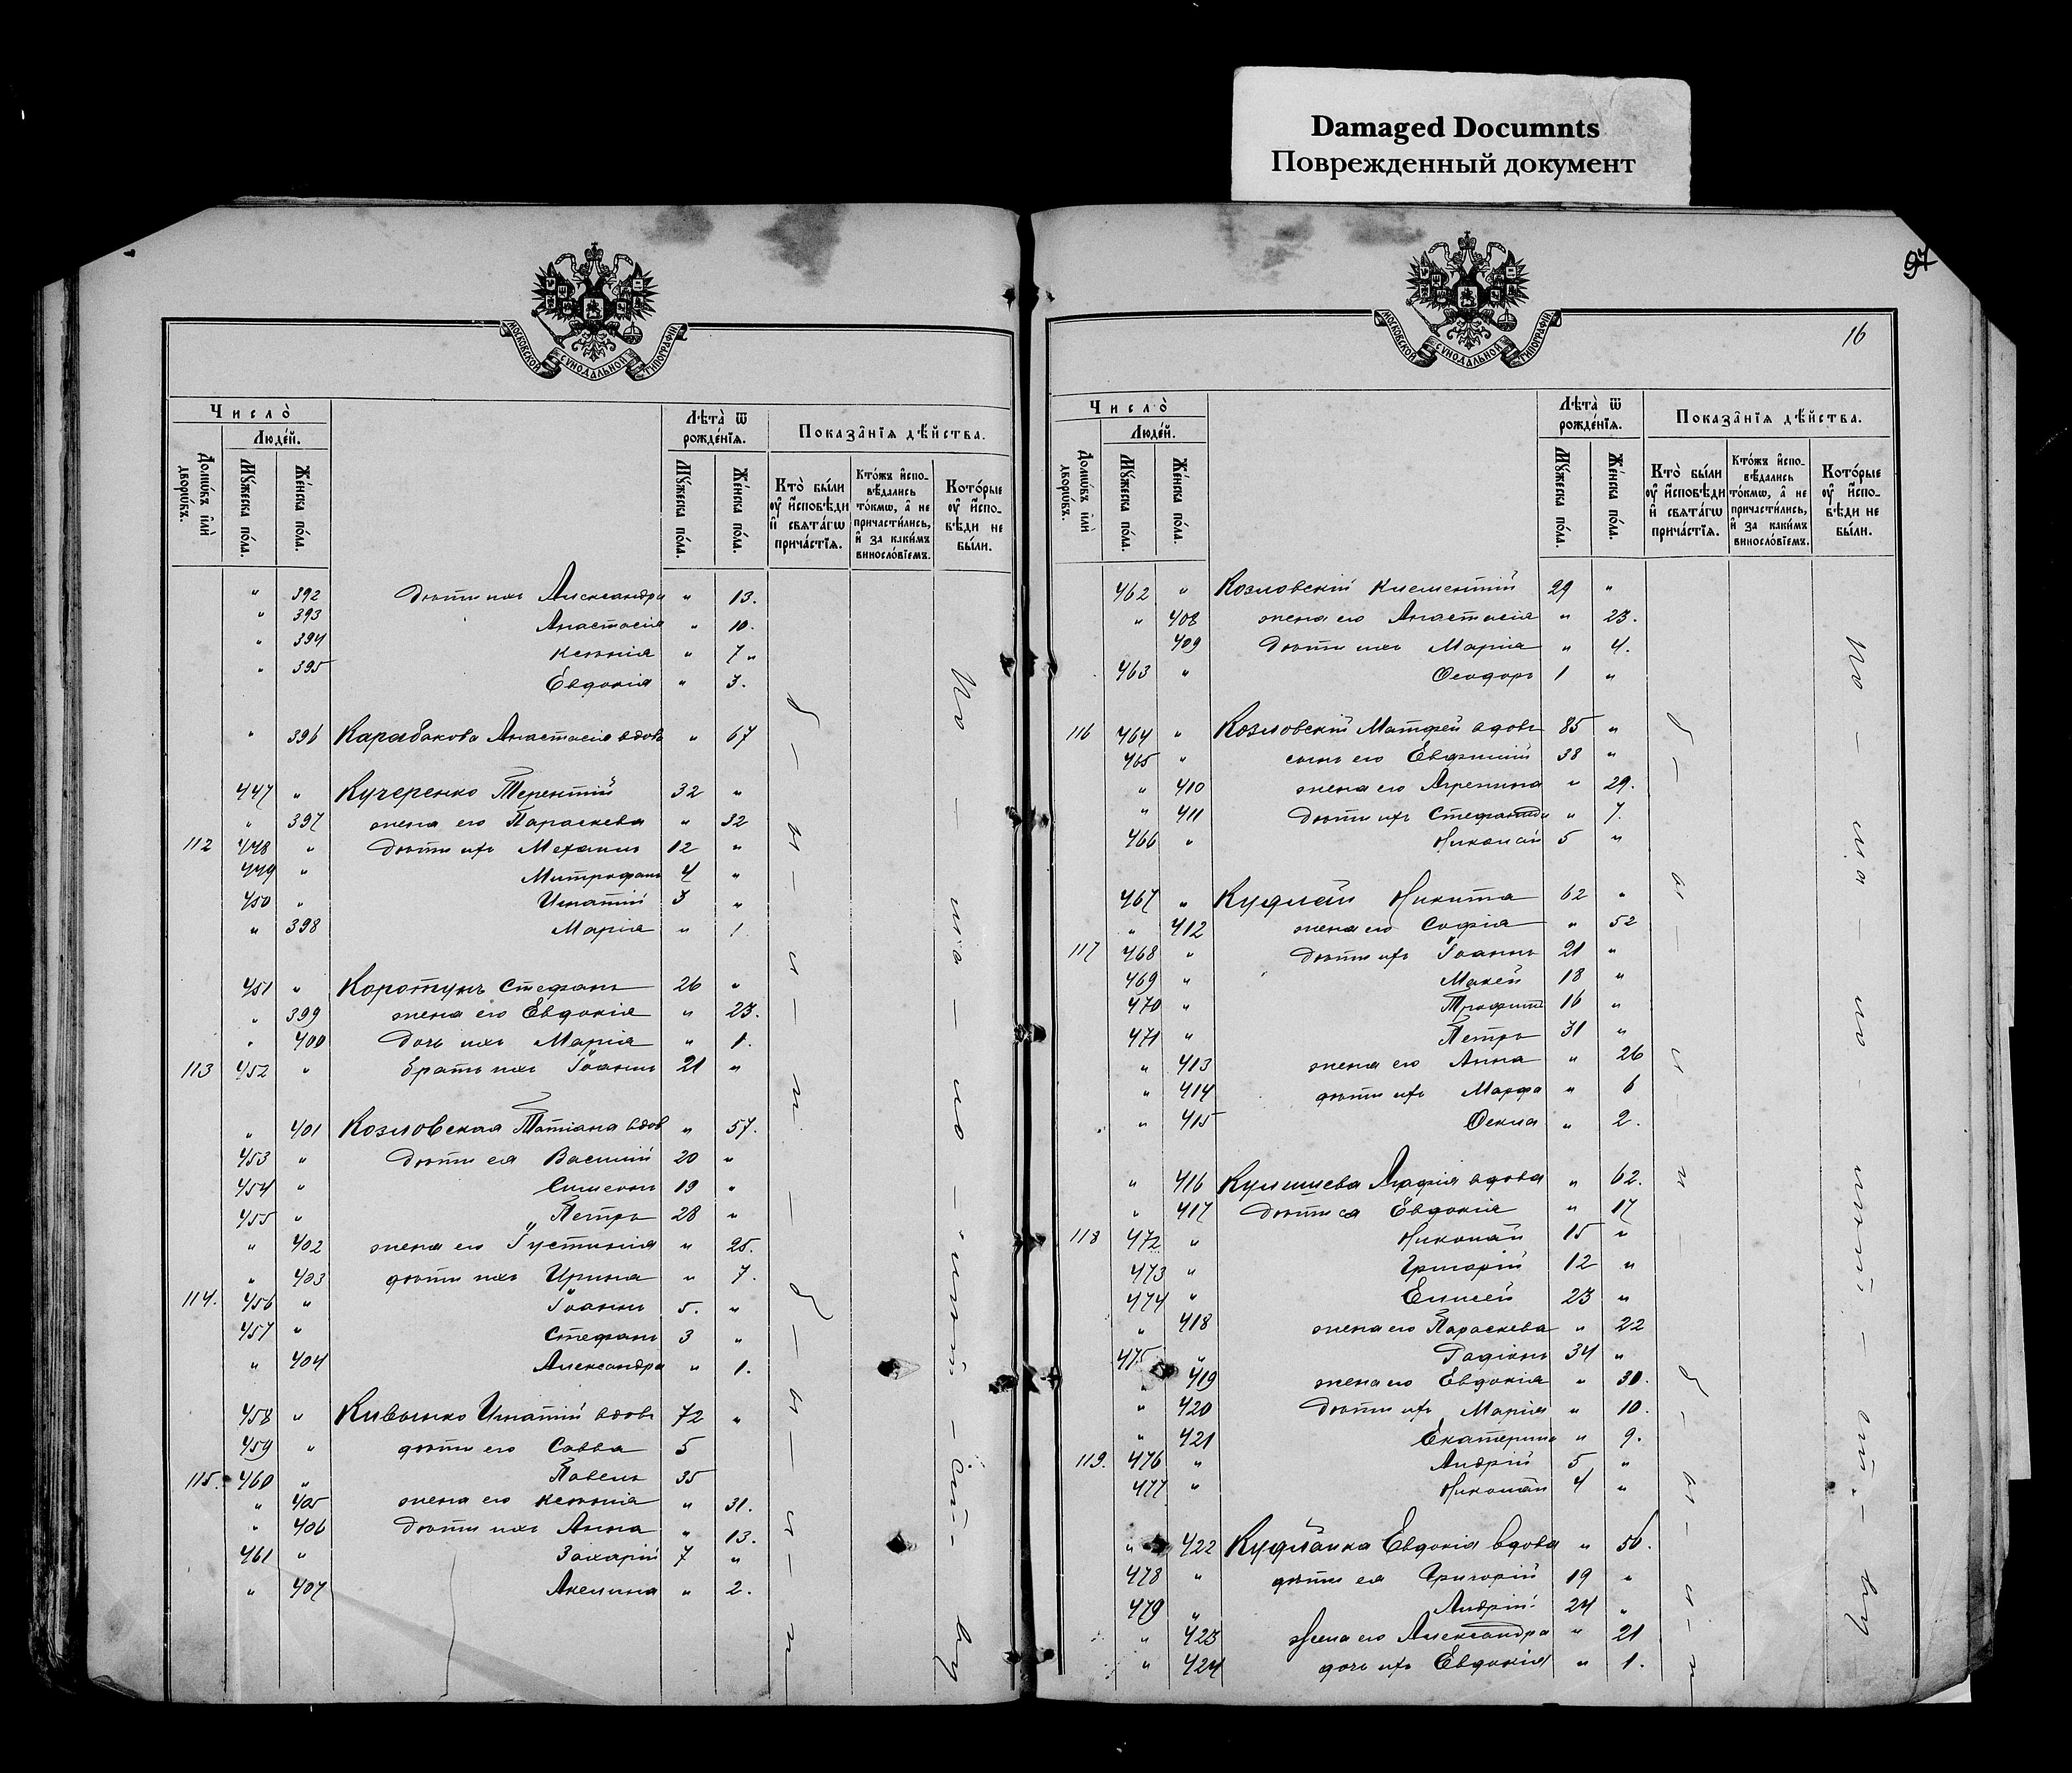 Damaged Documnts
Поврежденный документ
97
16
МОСКОВСКОЙ СѴНОДАЛЬНОЙ ТИПОГРАФІИ
Число̀
Людéй.
Домѡ́въ и҆лѝ дворѡ́въ.
Мꙋ́жеска по́ла.
Же́нска по́ла.
Лѣ́та ѿ рожде́нїѧ.
Мꙋ́жеска по́ла.
Же́нска по́ла.
Показа̑нїѧ дѣ́йства.
Кто̀ бы́ли ᲂу҆ и҆сповѣ́ди и҆ свѧта́гѡ прича́стїѧ.
Кто́жъ и҆сповѣ́дались то́кмѡ, а҆ не причасти́лись, и҆ за каки́мъ виносло́вїемъ.
Кото́рые ᲂу҆ и҆сповѣ́ди не бы́ли.
" 392 дѣти ихъ Александра " 13.
" 393 Анастасія " 10.
" 394 Ксенія " 7 "
" 395 Евдокія " 3.
" 396 Карабакова Анастасія вдова " 67
447 " Кучеренко Терентій 32 "
" 397 жена его Параскева " 32
112 448 " дѣти ихъ Михаилъ 12 "
449 " Митрофанъ 4 "
450 " Игнатій 3 "
" 398 Марія " 1
451 " Коротунъ Стефанъ 26 "
" 399 жена его Евдокія " 23.
" 400 дочь ихъ Марія " 1.
113 452 " братъ ихъ Іоаннъ 21 "
" 401 Козловская Татіана вдов " 57.
453 " дѣти ея Василій 20 "
454 " Симеонъ 19 "
455 " Петръ 28 "
" 402 жена его Іустинія " 25.
" 403 дѣти ихъ Ирина " 7.
114. 456 " Іоаннъ 5. "
457 " Стефанъ 3 "
" 404 Александра " 1.
458 " Игнатій вдовъ 72 "
459 " дѣти его Савва 5
115. 460 " Павелъ 35
" 405 жена его Ксенія " 31.
" 406 дѣти ихъ Анна " 13.
461 " Захарій 7 "
" 407 Акелина " 2.
Число̀
Людéй.
Домѡ́въ и҆лѝ дворѡ́въ.
Мꙋ́жеска по́ла.
Же́нска по́ла.
Лѣ́та ѿ рожде́нїѧ.
Мꙋ́жеска по́ла.
Же́нска по́ла.
Показа̑нїѧ дѣ́йства.
Кто̀ бы́ли ᲂу҆ и҆сповѣ́ди и҆ свѧта́гѡ прича́стїѧ.
Кто́жъ и҆сповѣ́дались то́кмѡ, а҆ не причасти́лись, и҆ за каки́мъ виносло́вїемъ.
Кото́рые ᲂу҆ и҆сповѣ́ди не бы́ли.
МОСКОВСКОЙ СѴНОДАЛЬНОЙ ТИПОГРАФІИ
462 " Козловскій Климентій 29 "
" 408 жена его Анастасія " 23.
409 дѣти ихъ Марія " 4.
463 " Ѳеодоръ 1 "
116 464 " Козловскій Матфей вдовъ 85 "
465 " сынъ его Евфимій 38 "
" 410 жена его Агрепина " 29.
" 411 дѣти ихъ Стефанида " 7.
466 " Николай 5 "
467 " Куфлей Никита 62 "
" 412 жена его Софія " 52
117 468 " дѣти ихъ Іоаннъ 21 "
469 " Макей 18 "
470 " Трофимъ 16 "
471 " Петръ 31 "
" 413 жена его Анна " 26
" 414 дѣти ихъ Марфа " 6
" 415 Ѳекла " 2.
" 416 Агафія вдова " 62.
" 417 дѣти ея Евдокія " 17
118 472 " Николай 15 "
473 " Григорій 12 "
474 " Елисей 23 "
" 418 жена его Параскева " 22
475 " Родіонъ 34 "
" 419 жена его Евдокія " 30.
" 420 дѣти ихъ Марія " 10.
" 421 Екатерина " 9.
119. 476 " Андрій 5 "
477 " Николай 4 "
" 422 Куфлайка Евдокія вдова " 50.
478 " дѣти ея Григорій 19 "
479 " Андрій 24 "
" 423 жена его Александра " 21
" 424 дочь ихъ Евдокія " 1.